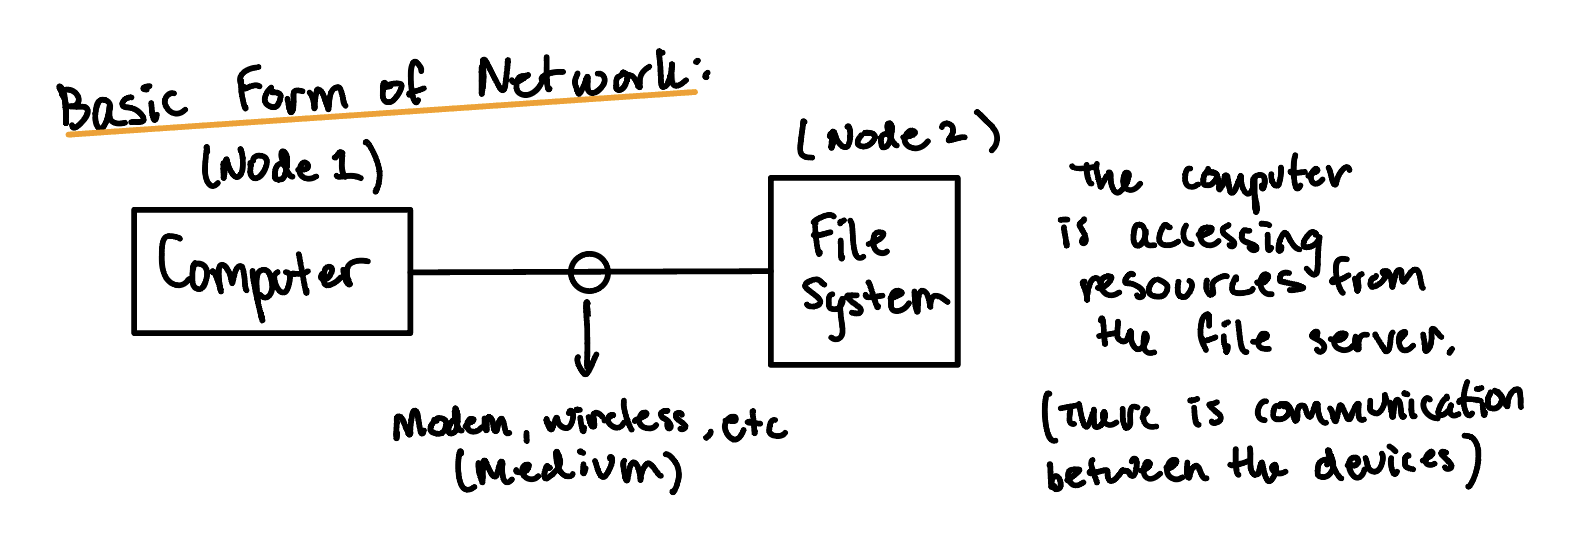 Basic Form of Network:
(Node 1)
(Node 2)
Computer
File
System
Modem, wireless, etc
(Medium)
The computer
is accessing
resources from
the file server.
(There is communication
between the devices)